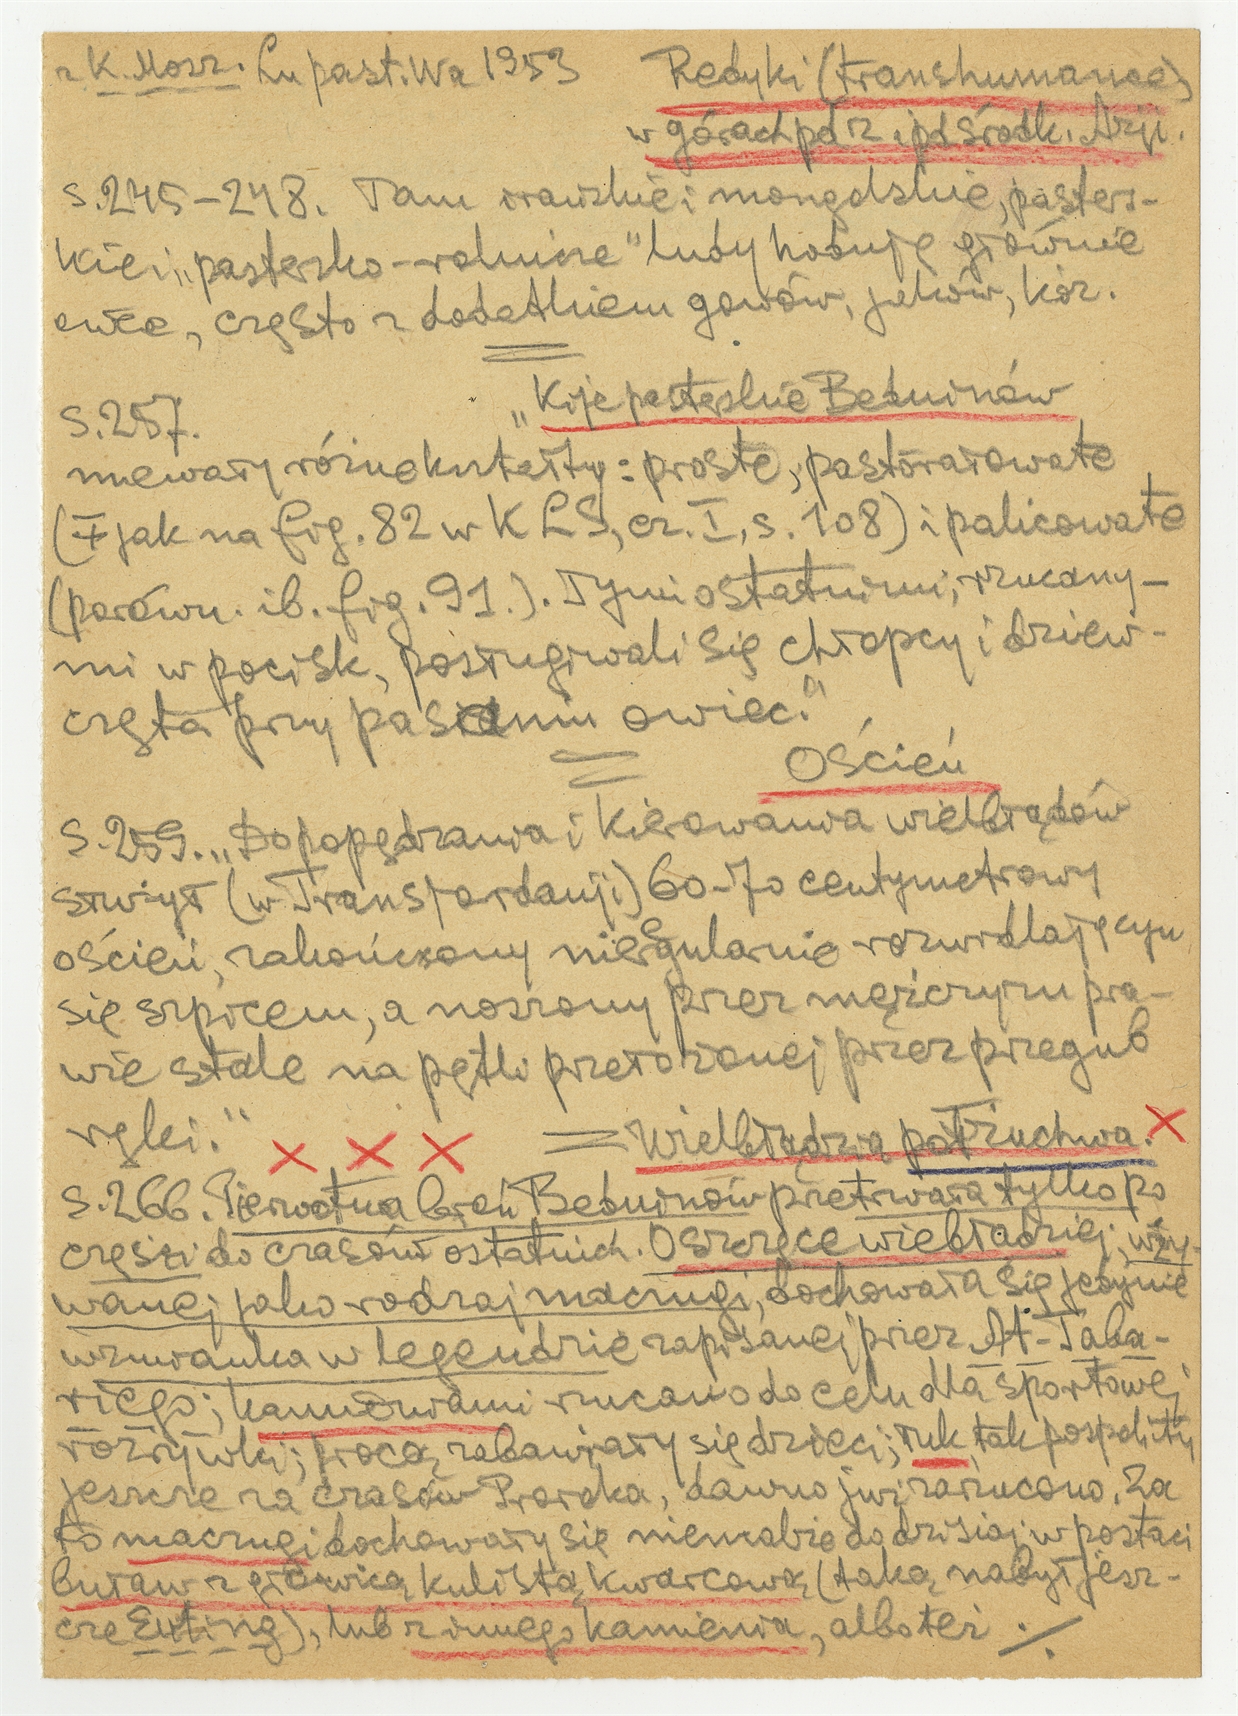 z K. Mosz. Lu past. Wa 1953 Redyki (transhumance)
w górach pd z i pd środk. Azji.
s. 245–248. Tam irańskie i mongolskie, paster-
skie i „pastersko-rolnicze" ludy hodują głównie
owce, często z dodatkiem gowów, jaków, kóz.
„Kije pasterskie Beduinów
s. 257.
miewały różne kształty: proste, pastorałowate
(± jak na fig. 82 w KLS, cz. I, s. 108) i palicowate
(porówn. ib. fig. 91.). Tymi ostatnimi, rzucany-
mi w pocisk, posługiwali się chłopcy i dziew-
częta przy pasaniu owiec."
Oścień
s. 259. „Do popędzania i kierowania wielbłądów
służył (w Transjordanji) 60–70 centymetrowy
oścień, zakończony nieregularnie rozwidlającym
się szpicem, a noszony przez mężczyzn pra-
wie stale na pętli przełożonej przez przegub
ręki."
= Wielbłądzia półżuchwa.
s. 266. Pierwotna broń Beduinów przetrwała tylko po
części do czasów ostatnich. O szczęce wielbłądziej, uży-
wanej jako rodzaj maczugi, dochowała się jedynie
wzmianka w legendzie zapisanej przez At-Taba-
riego; kamieniami rzucano do celu dla sportowej
rozrywki; procą zabawiały się dzieci; łuk tak pospolity
jeszcze za czasów Proroka, dawno już zarzucono. Za
to maczugi dochowały się niemalże do dzisiaj w postaci
buław z główicą kulistą kwarcową (taką nabył jesz-
cze Euting), lub z innego kamienia, albo też ./.